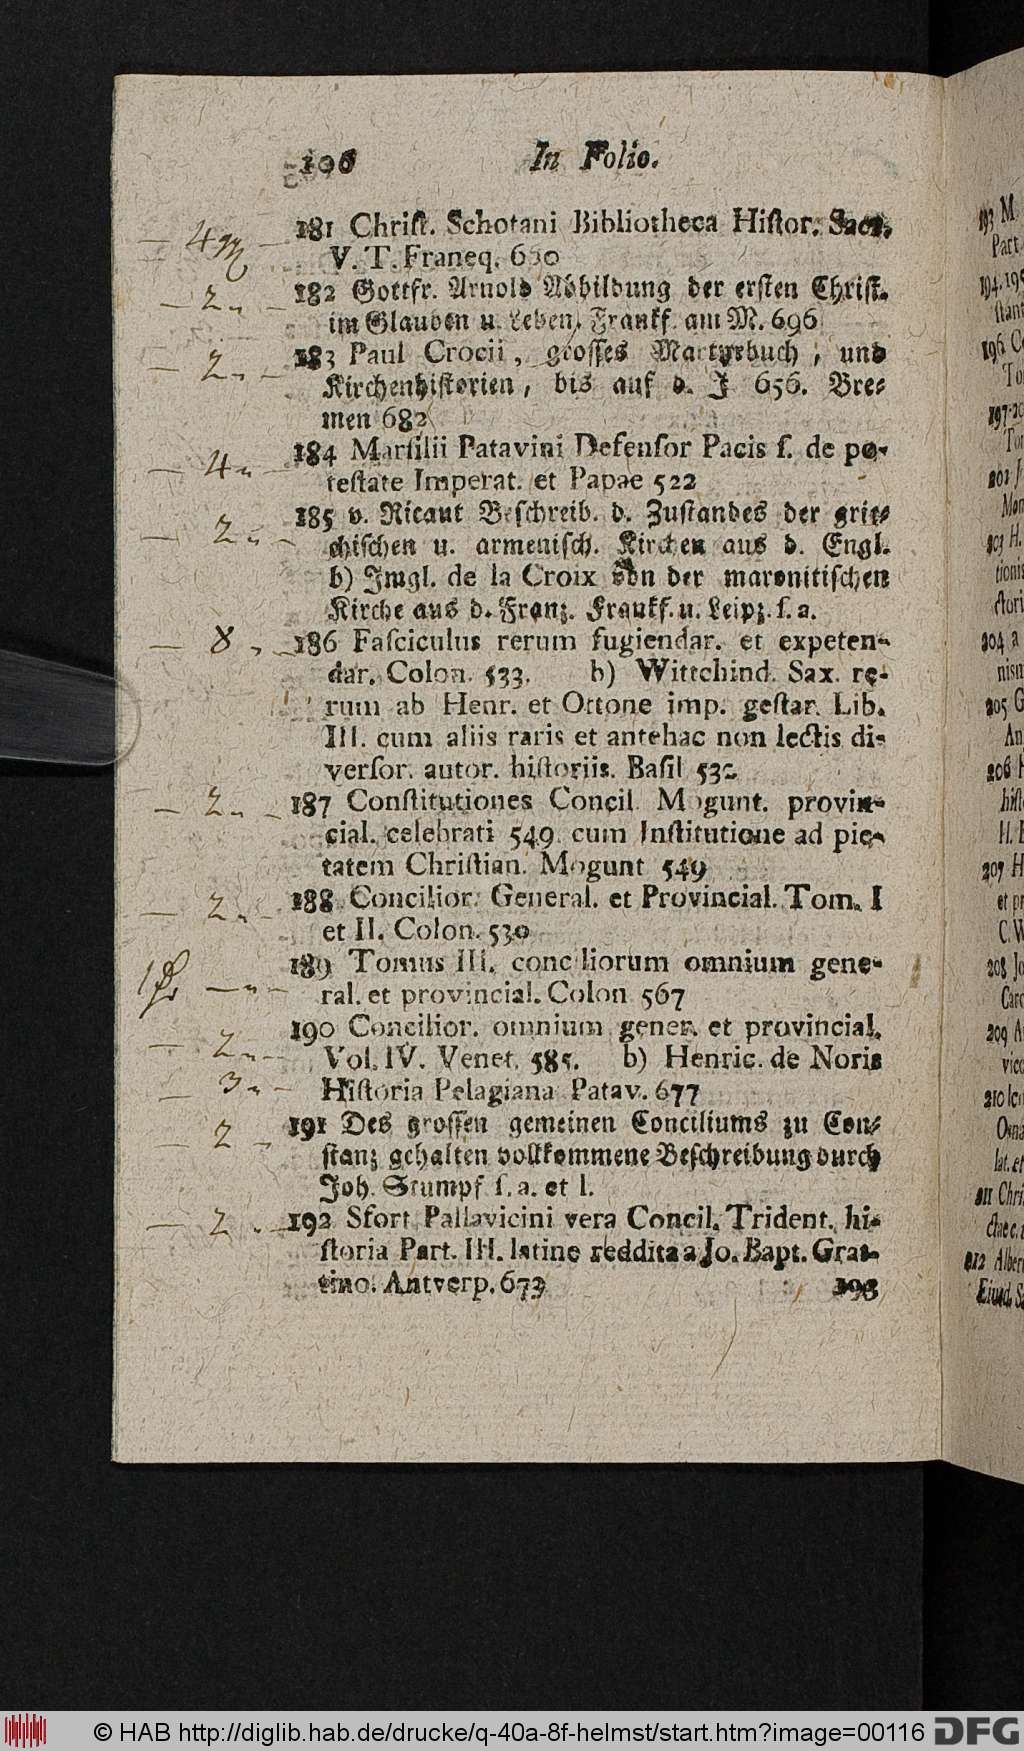 106 In Folio.
181 Chriſt. Schotani Bibliotheca Hiſtor. Sacr.
V. T. Franeq.
182 Gottfr. Arnold Abbildung der erſten Chriſt.
im Glauben u. Leben. Frankf. am M. 696
183 Paul Crocii, groſſes Martyrbuch, und
Kirchenhiſtorien, bis auf d. J 656. Bre-
men 682
184 Marſilii Patavini Defenſor Pacis ſ. de po-
teſtate Imperat. et Papae 522
185 v. Ricaut Beſchreib. d. Zuſtandes der grie-
chiſchen u. armeniſch. Kirchen aus d. Engl.
b) Imgl. de la Croix von der maronitiſchen
Kirche aus d. Franz. Frankf. u. Leipz. ſ. a.
186 Faſciculus rerum fugiendar. et expeten-
dar. Colon. 533. b) Wittchind. Sax. re-
rum ab Henr. et Ottone imp. geſtar. Lib.
III. cum aliis raris et antehac non lectis di-
verſor. autor. hiſtoriis. Baſil 532
187 Conſtitutiones Concil. Mogunt. provin-
cial. celebrati 549. cum Inſtitutione ad pie-
tatem Chriſtian. Mogunt 549
188 Concilior. General. et Provincial. Tom. I
et II. Colon. 530
189 Tomus III. conciliorum omnium gene-
ral. et provincial. Colon 567
190 Concilior. omnium gener. et provincial.
Vol. IV. Venet. 585. b) Henric. de Noris
Hiſtoria Pelagiana Patav. 677
191 Des groſſen gemeinen Conciliums zu Con-
ſtanz gehalten vollkommene Beſchreibung durch
Joh. Stumpf ſ. a. et l.
192 Sfort. Pallavicini vera Concil. Trident. hi-
ſtoria Part. III. latine reddita a Jo. Bapt. Grat-
tino. Antverp. 673
193
— 4
— 2 „ —
— 2 „ —
— 4 „ —
— 2 „ —
— 8 „ —
— 2 „ —
— 2 „ —
1 — „ —
— 2 „ —
— 3 „ —
— 2 „
— 2 „ —
© HAB http://diglib.hab.de/drucke/q-40a-8f-helmst/start.htm?image=00116 DFG